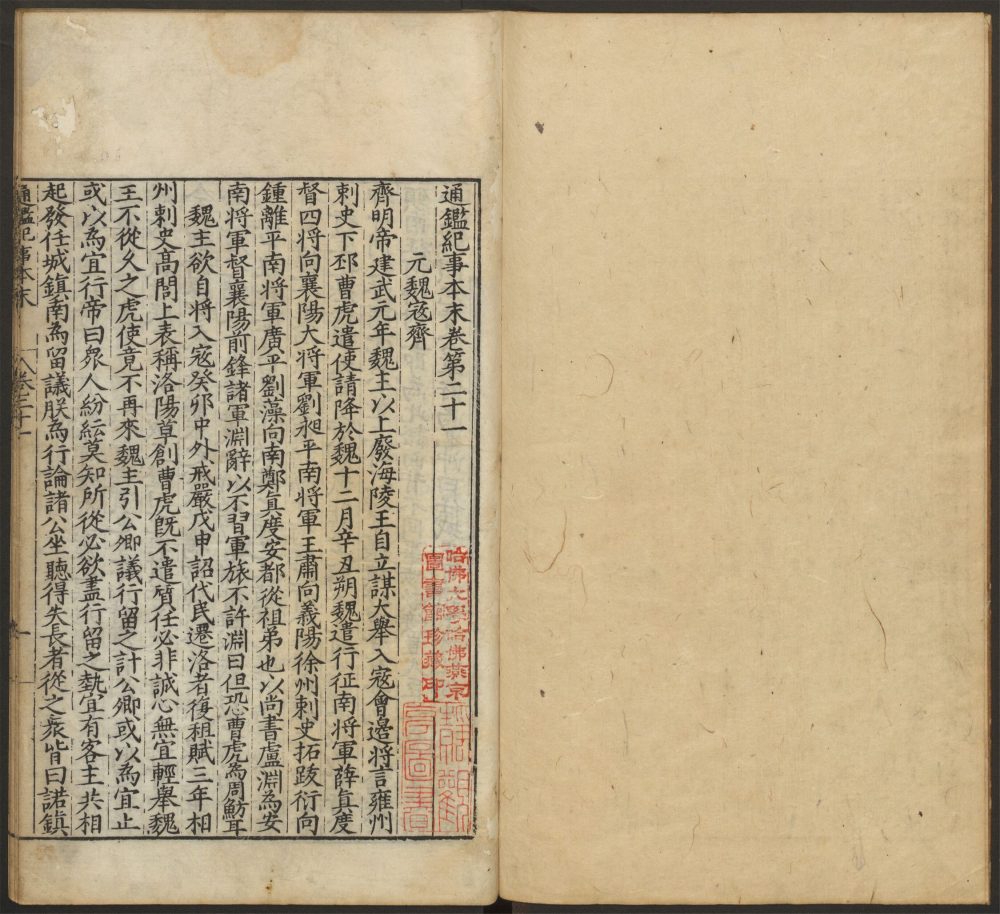 通鑑紀事本末卷第二十一
元魏寇齊
齊明帝建武元年魏主以上廢海陵王自立謀大舉入寇會邊將言雍州
刺史下邳曹虎遣使請降於魏十二月辛丑朔魏遣行征南將軍薛真度
督四將向襄陽大將軍劉昶平南將軍王肅向義陽徐州刺史拓跋衍向
鍾離平南將軍廣平劉藻向南鄭真度安都從祖弟也以尚書盧淵為安
南將軍督襄陽前鋒諸軍淵辭以不習軍旅不許淵曰但恐曹虎為周魴耳
魏主欲自將入寇癸卯中外戒嚴戊申詔代民遷洛者復租賦三年相
州刺史高閭上表稱洛陽草創曹虎旣不遣質任必非誠心無宜輕舉魏
王不從久之虎使竟不再來魏主引公卿議行留之計公卿或以為宜止
或以為宜行帝曰衆人紛紜莫知所從必欲盡行留之埶宜有客主共相
起發任城鎮南為留議朕為行論諸公坐聽得失長者從之衆皆曰諾鎮
通鑑紀事本末
卷二十一
一
哈佛大學哈佛燕京
圖書館珍藏印